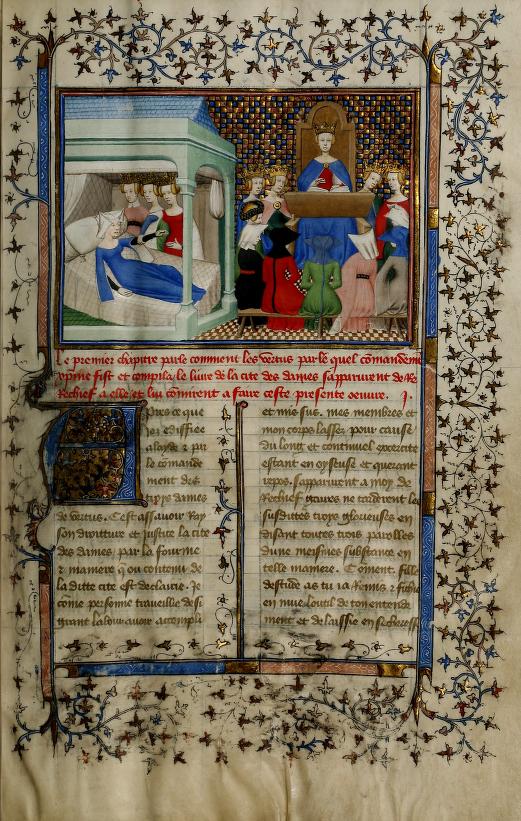 Le premier chapitre parle comment les vertus par le quel comandemēt
xpine fist et compila le liure de la cite des dames sapparurent de Re
Rechief a elle et lui commirent a faire ceste presente oeuure. j.
Apres ce que
ioz ediffiee
a layde z par
le comande
ment des
trois dames
de vertus. Cest assauoir Ray
son droitture et justice la cite
des dames par la fourme
z maniere q̄ ou contenu de
la ditte cite est declairie. Je
cōme personne trauaillie de si
grant labour auoir accompli
et mis sus. mes membres et
mon corps lassez pour cause
du long et continuel excercite
estant en oyseuse et querant
repos. sapparurent a moy de
Rechief gaires ne tardirent les
susdittes troys glorieuses en
disant toutes troys parolles
dune meismes substance en
telle maniere. Cōment. fille
destude as tu ia Remis z fichie
en mue loutil de ton entende
ment et delaissie en secheresse